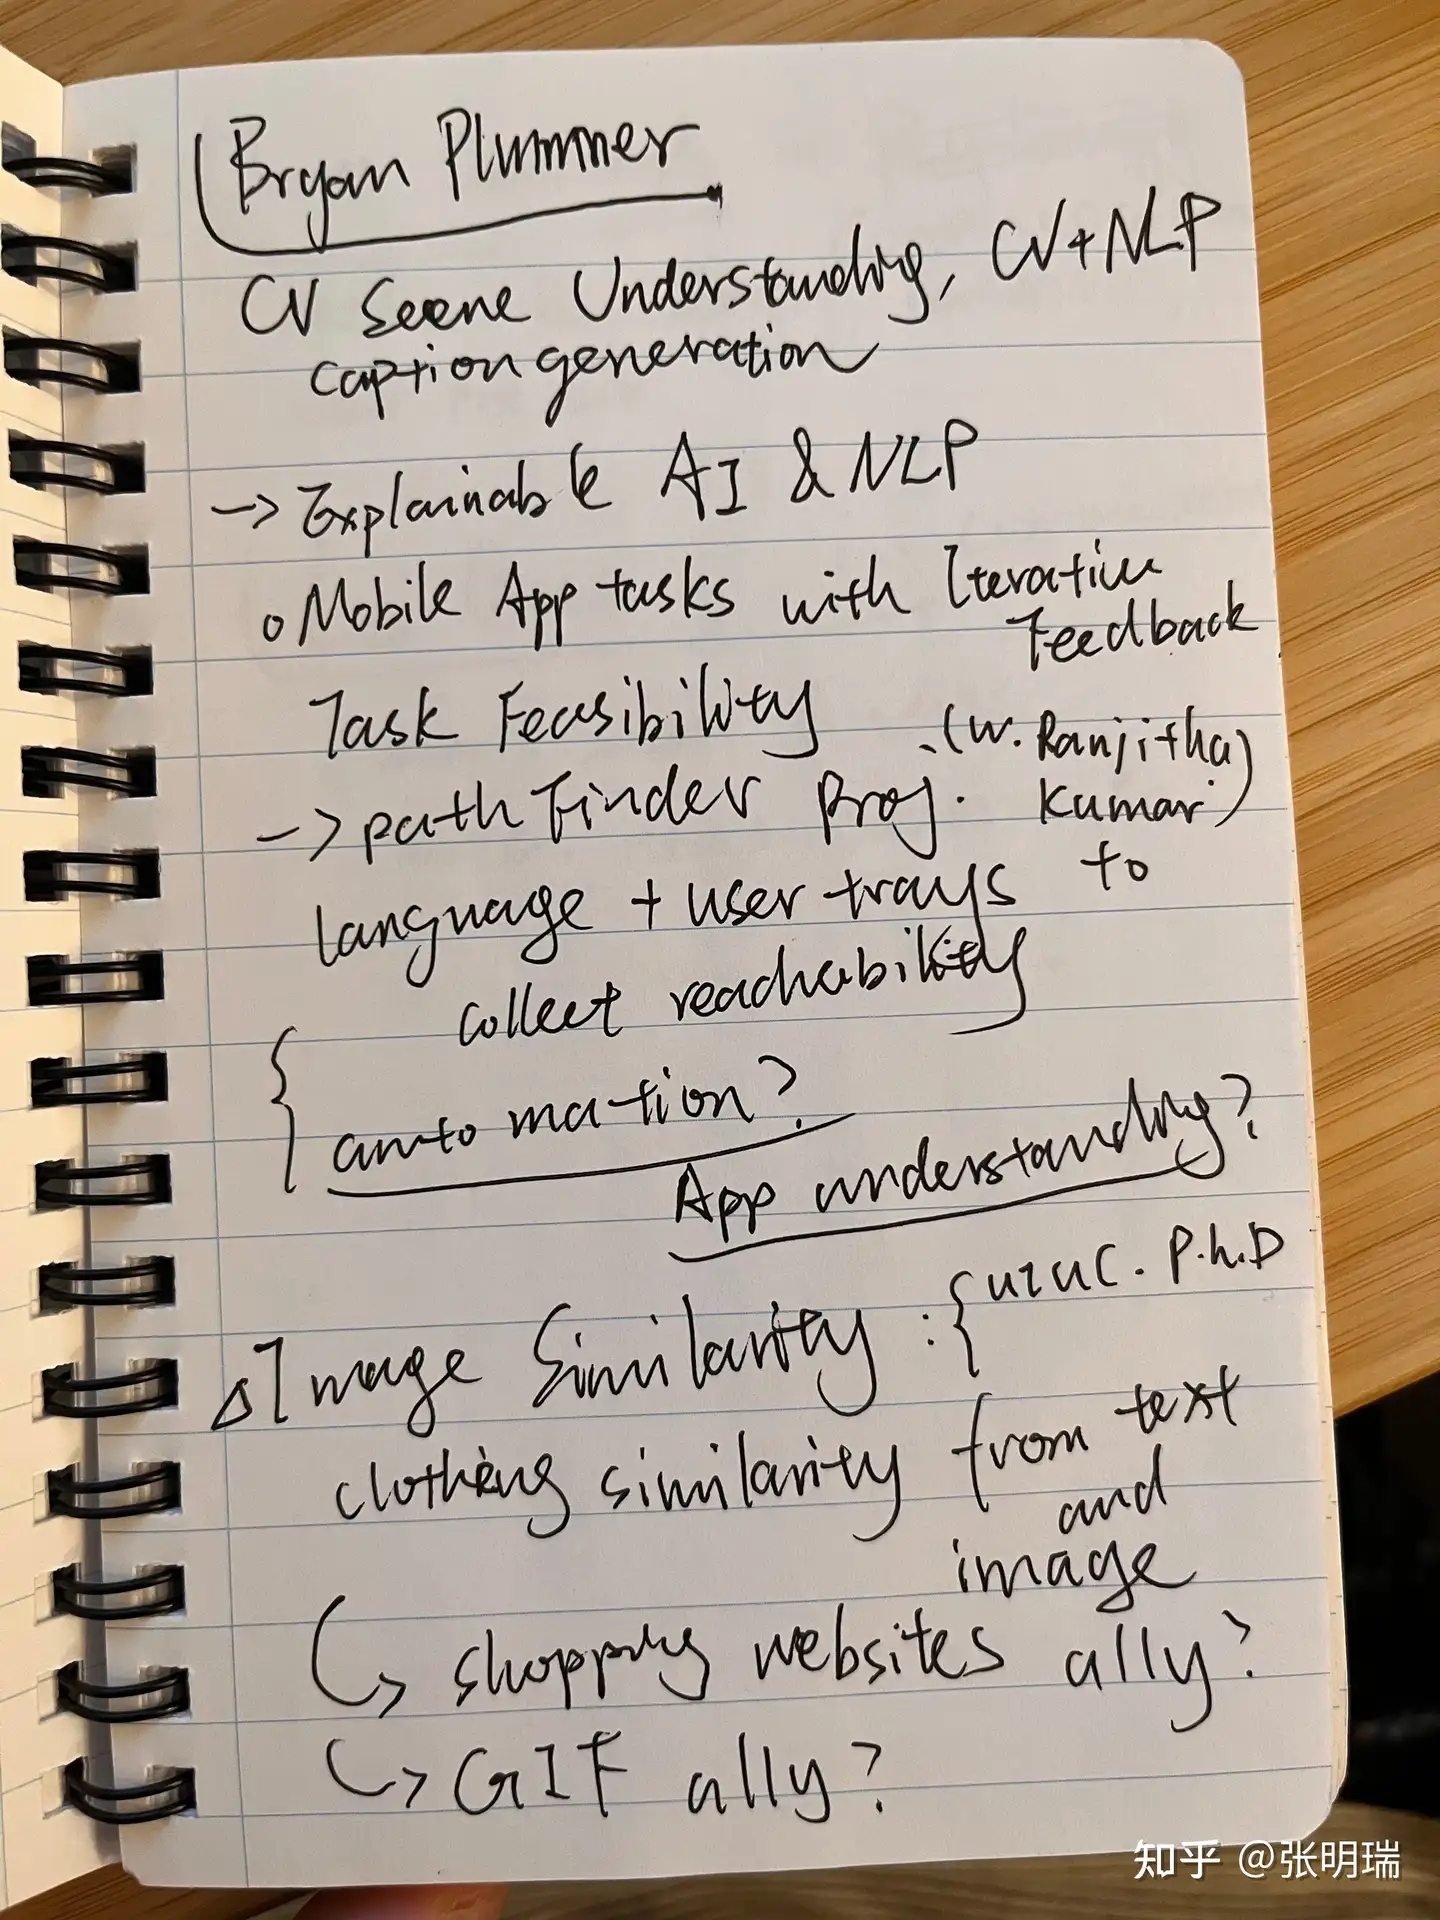 Bryan Plummer
CV Scene Understanding, CV+NLP
caption generation
→ Explainable AI & NLP
o Mobile App tasks with Iterative
Feedback
Task Feasibility
→ path Finder Proj. (w. Ranjitha
Kumar)
language + user trays to
collect reachability
{ automation?
App understanding?
△ Image Similarity : { UIUC. P.h.D
clothing similarity from text
and
image
↳ shopping websites a11y?
↳ GIF a11y?
知乎 @张明瑞